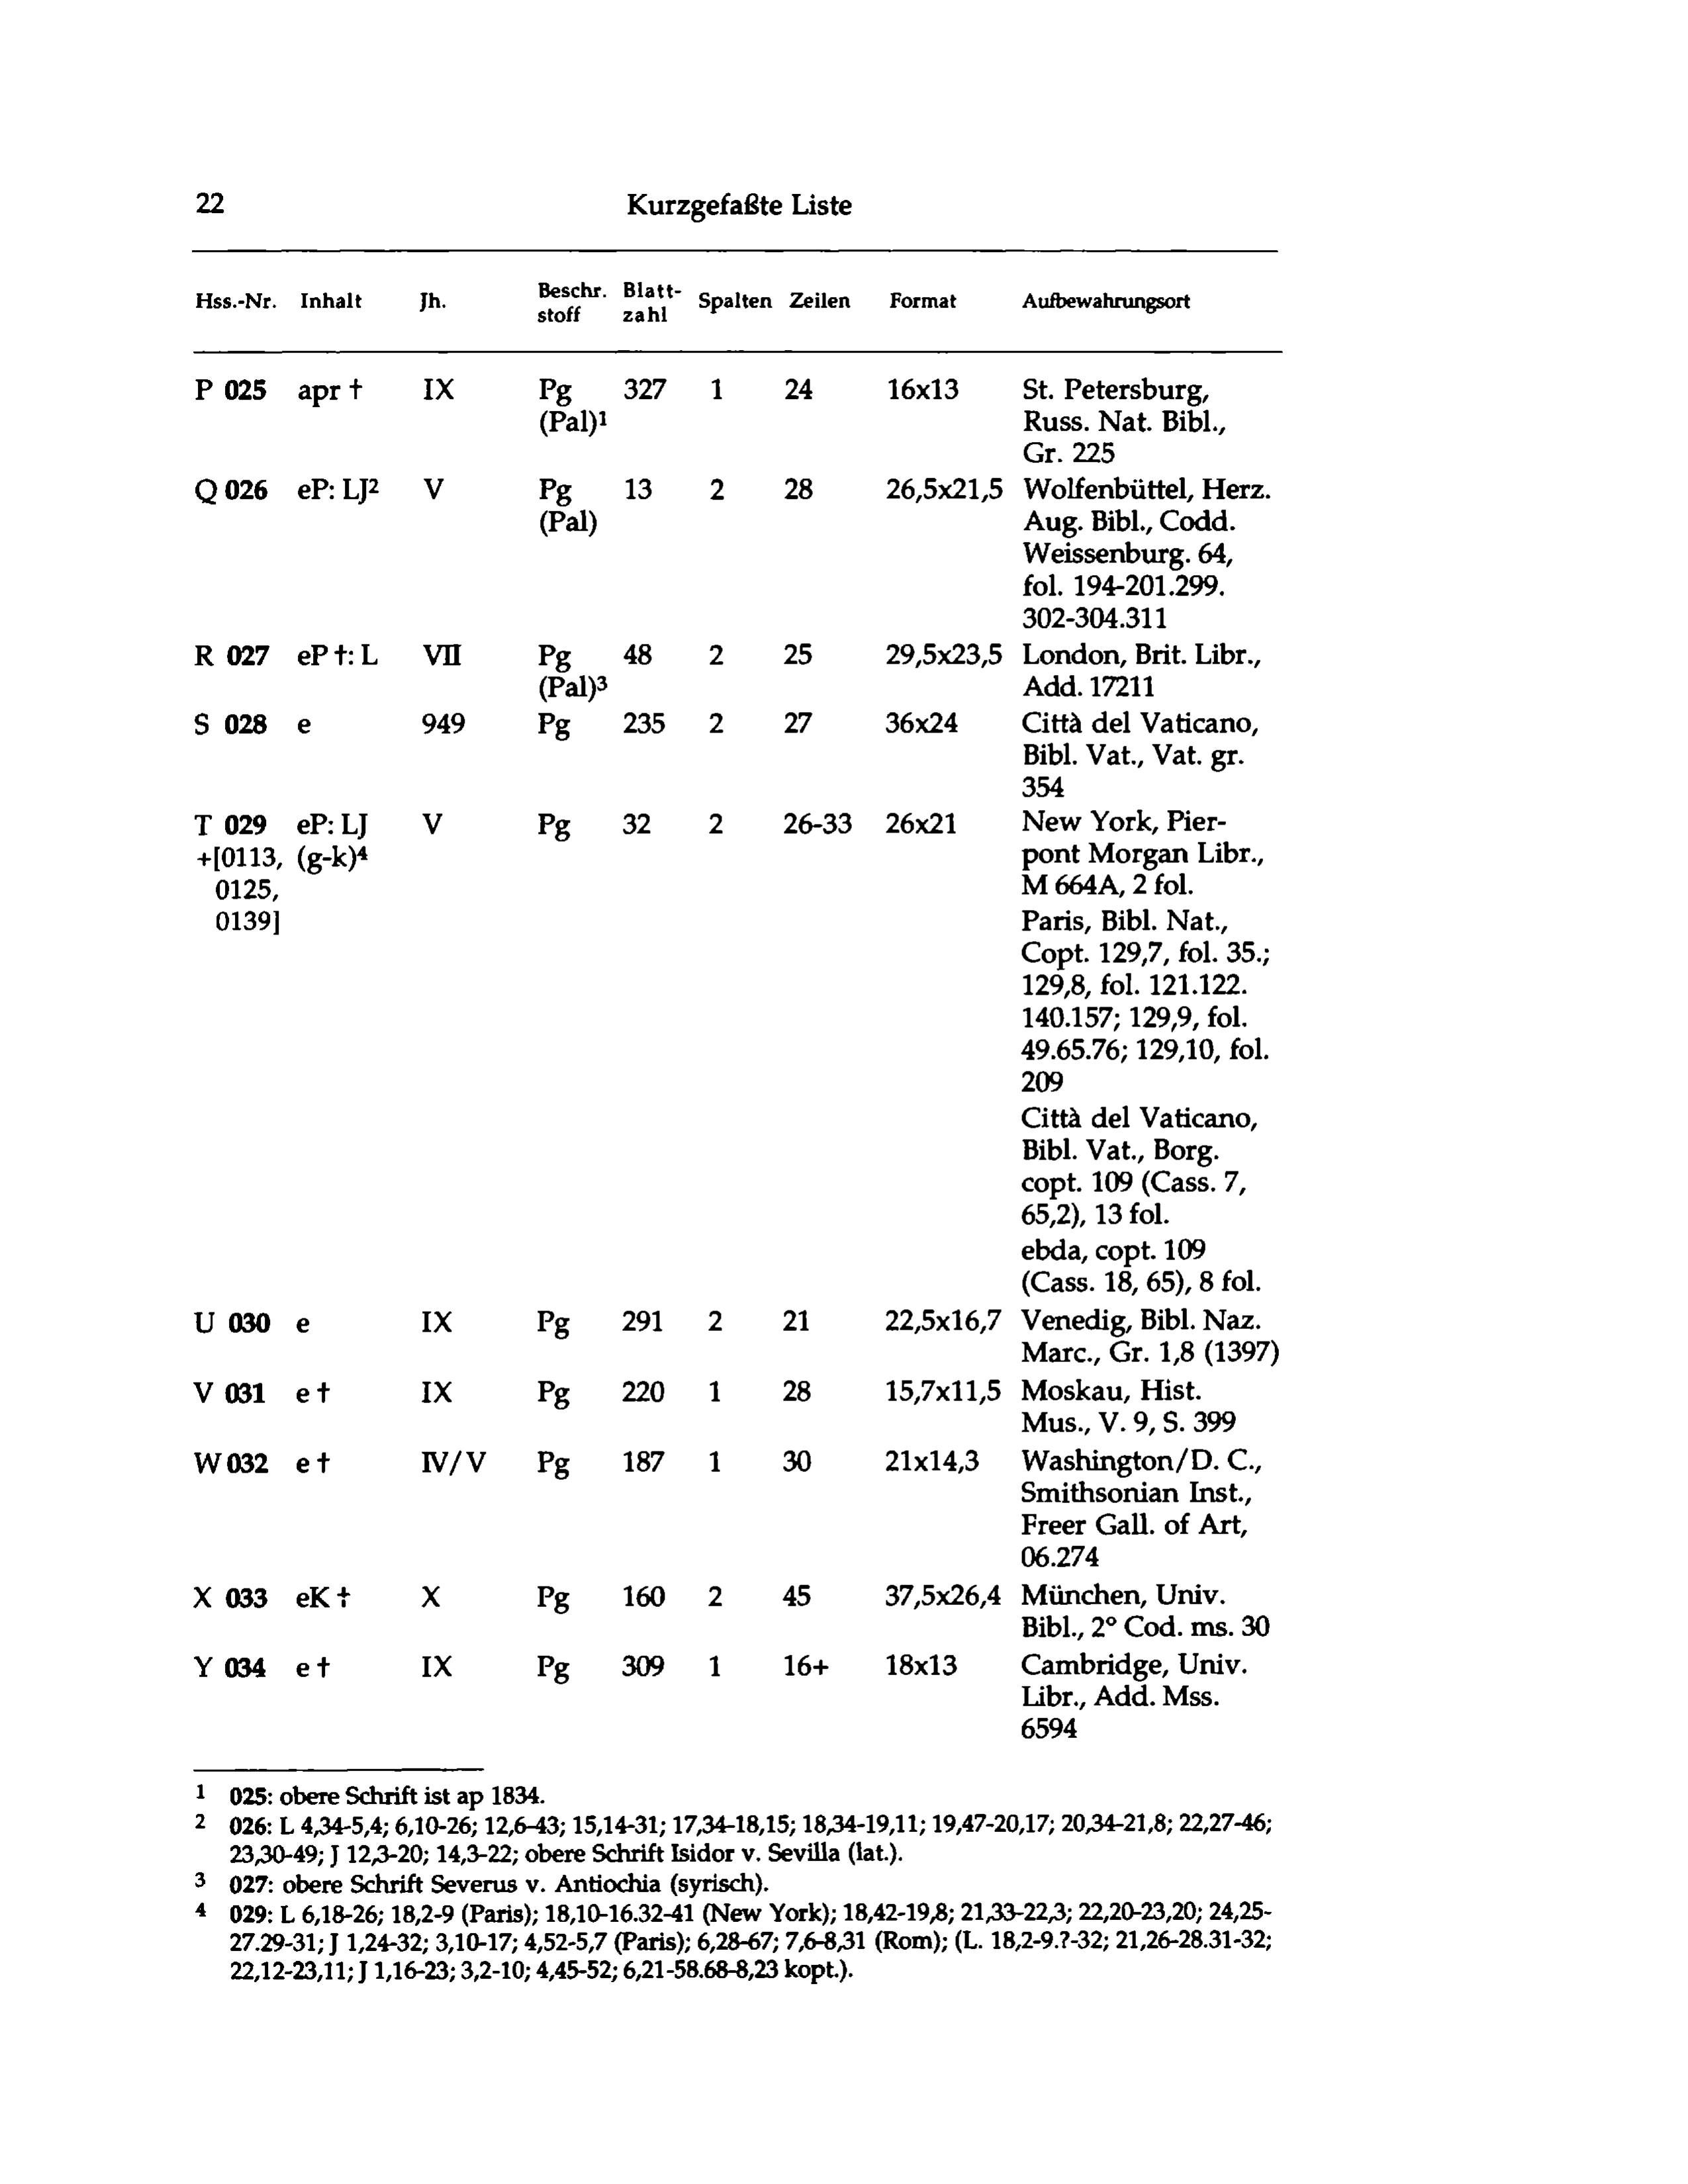 22 Kurzgefaßte Liste
Hss.-Nr. Inhalt Jh. Beschr. stoff Blatt- zahl Spalten Zeilen Format Aufbewahrungsort
P 025 apr † IX Pg 327 1 24 16x13 St. Petersburg,
(Pal)¹ Russ. Nat. Bibl.,
Gr. 225
Q 026 eP: LJ² V Pg 13 2 28 26,5x21,5 Wolfenbüttel, Herz.
(Pal) Aug. Bibl., Codd.
Weissenburg. 64,
fol. 194-201.299.
302-304.311
R 027 eP †: L VII Pg 48 2 25 29,5x23,5 London, Brit. Libr.,
(Pal)³ Add. 17211
S 028 e 949 Pg 235 2 27 36x24 Città del Vaticano,
Bibl. Vat., Vat. gr.
354
T 029 eP: LJ V Pg 32 2 26-33 26x21 New York, Pier-
+[0113, (g-k)⁴ pont Morgan Libr.,
0125, M 664A, 2 fol.
0139] Paris, Bibl. Nat.,
Copt. 129,7, fol. 35.;
129,8, fol. 121.122.
140.157; 129,9, fol.
49.65.76; 129,10, fol.
209
Città del Vaticano,
Bibl. Vat., Borg.
copt. 109 (Cass. 7,
65,2), 13 fol.
ebda, copt. 109
(Cass. 18, 65), 8 fol.
U 030 e IX Pg 291 2 21 22,5x16,7 Venedig, Bibl. Naz.
Marc., Gr. 1,8 (1397)
V 031 e † IX Pg 220 1 28 15,7x11,5 Moskau, Hist.
Mus., V. 9, S. 399
W 032 e † IV/V Pg 187 1 30 21x14,3 Washington/D. C.,
Smithsonian Inst.,
Freer Gall. of Art,
06.274
X 033 eK † X Pg 160 2 45 37,5x26,4 München, Univ.
Bibl., 2° Cod. ms. 30
Y 034 e † IX Pg 309 1 16+ 18x13 Cambridge, Univ.
Libr., Add. Mss.
6594
1 025: obere Schrift ist ap 1834.
2 026: L 4,34-5,4; 6,10-26; 12,6-43; 15,14-31; 17,34-18,15; 18,34-19,11; 19,47-20,17; 20,34-21,8; 22,27-46;
23,30-49; J 12,3-20; 14,3-22; obere Schrift Isidor v. Sevilla (lat.).
3 027: obere Schrift Severus v. Antiochia (syrisch).
4 029: L 6,18-26; 18,2-9 (Paris); 18,10-16.32-41 (New York); 18,42-19,8; 21,33-22,3; 22,20-23,20; 24,25-
27.29-31; J 1,24-32; 3,10-17; 4,52-5,7 (Paris); 6,28-67; 7,6-8,31 (Rom); (L. 18,2-9.?-32; 21,26-28.31-32;
22,12-23,11; J 1,16-23; 3,2-10; 4,45-52; 6,21-58.68-8,23 kopt.).